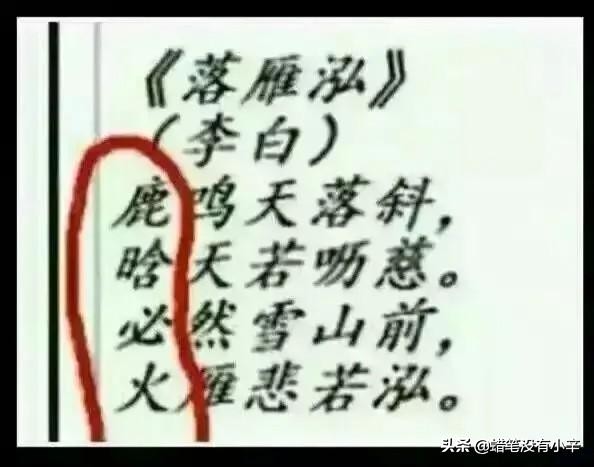 《落雁泓》
(李白)
鹿鸣天落斜，
晗天若呖慈。
必然雪山前，
火雁悲若泓。
头条 @蜡笔没有小辛